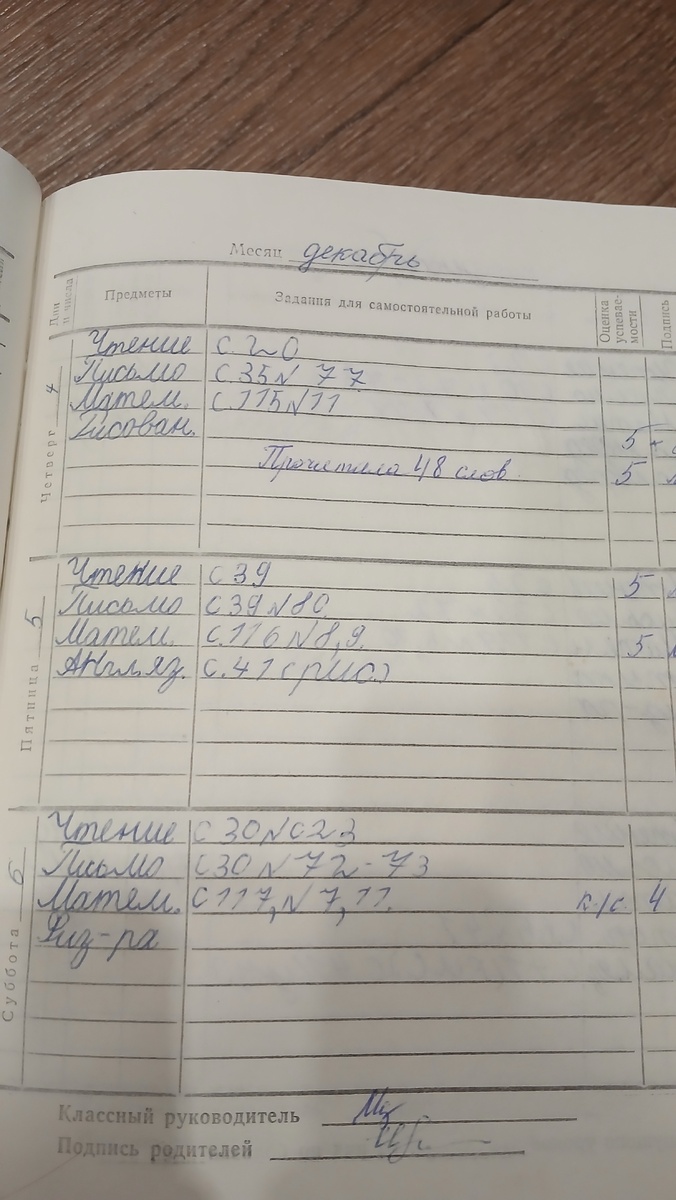 Месяц декабрь
Дни и числа Предметы Задания для самостоятельной работы Оценка успевае-мости Подпись
Четверг 4
Чтение с. 20
Письмо с. 35 N 77
Матем. с. 115 N 11
Рисован. 5
Прочитала 48 слов 5
Пятница 5
Чтение с 39 5
Письмо с 39 N 80
Матем. с. 116 N 8, 9. 5
Англ. яз. с. 41 (рис)
Суббота 6
Чтение с 30 N с 23
Письмо с 30 N 72-73
Матем. с 117, N 7, 11. к/с 4
Физ-ра
Классный руководитель
Подпись родителей